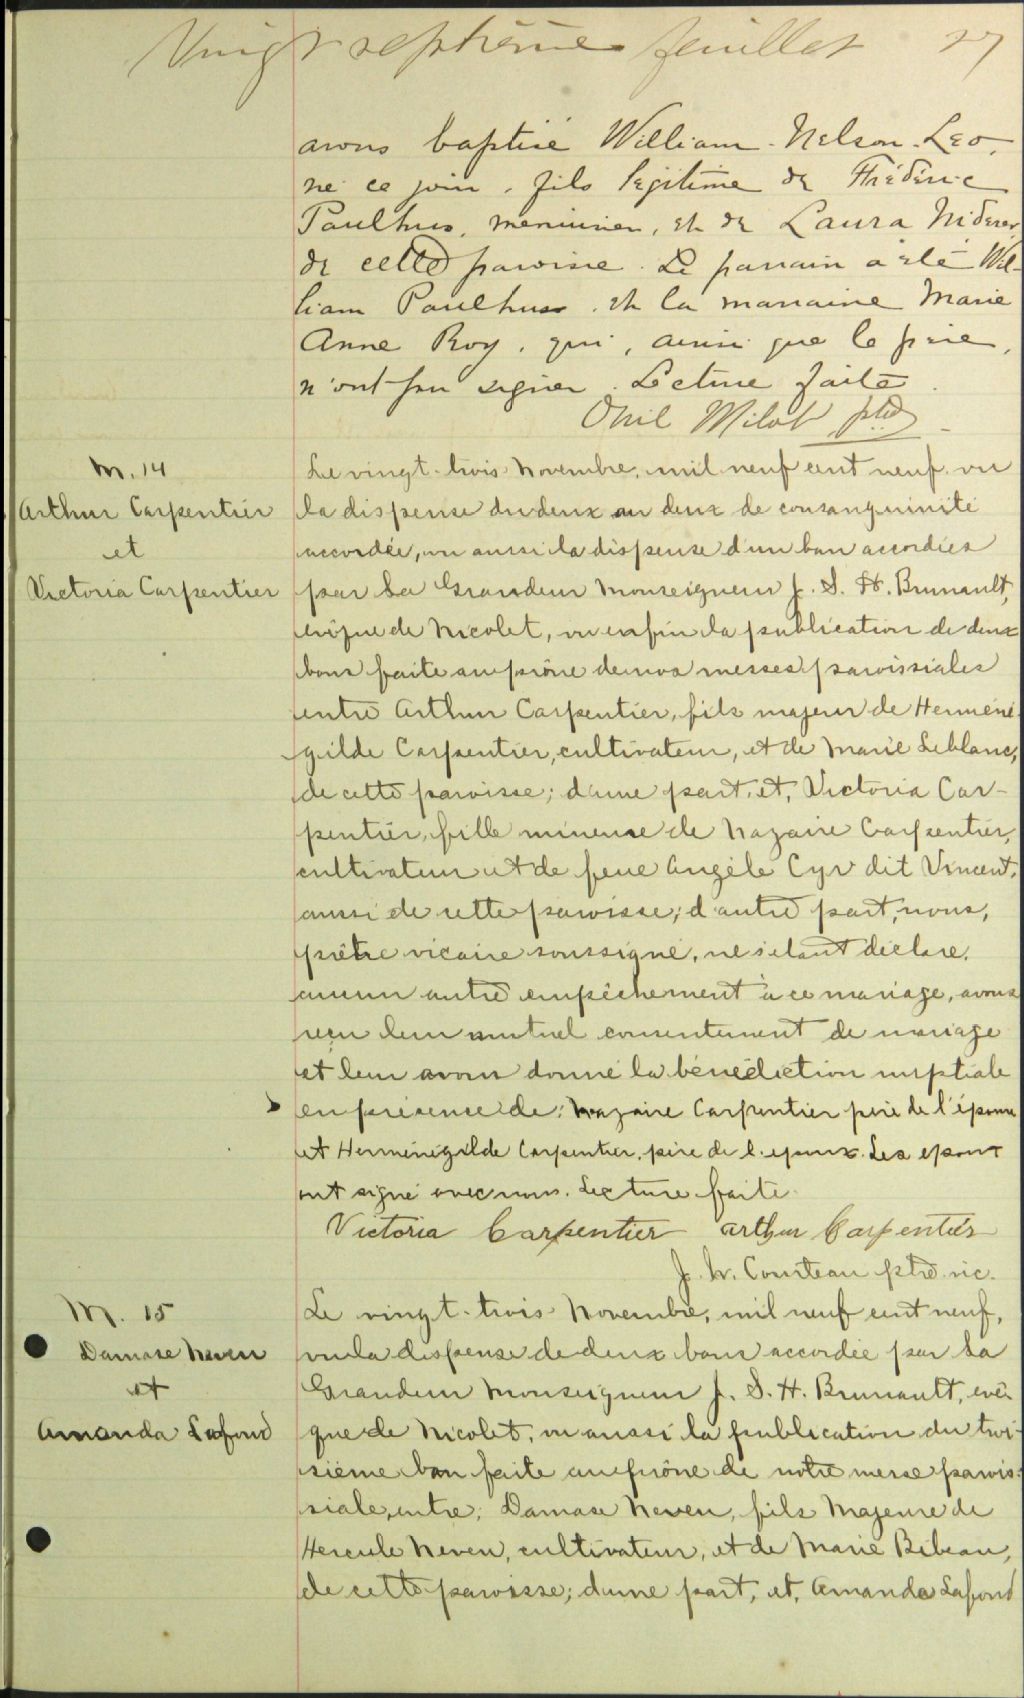 Vingt septième feuillet 27
avons baptisé William-Nelson-Leo,
né ce jour, fils légitime de Frédéric
Paulhus, menuisier, et de Laura
de cette paroisse. Le parrain a été Wil-
liam Paulhus et la marraine Marie
Anne Roy, qui, ainsi que le père,
n'ont su signer. Lecture faite.
Ovil Milot ptre
M. 14
Arthur Carpentier
et
Victoria Carpentier
Le vingt-trois Novembre, mil neuf cent neuf, vu
la dispense du deux au deux de consanguinité
accordée, vu aussi la dispense d'un ban accordées
par Sa Grandeur Monseigneur J. S. H. Brunault,
évêque de Nicolet, vu enfin la publication de deux
bans faite au prône de nos messes paroissiales
entre Arthur Carpentier, fils majeur de Herméné-
gilde Carpentier, cultivateur, et de Marie Leblanc,
de cette paroisse; d'une part, et, Victoria Car-
pentier, fille mineure de Nazaire Carpentier,
cultivateur et de feue Angèle Cyr dit Vincent,
aussi de cette paroisse; d'autre part, nous,
prêtre vicaire soussigné, ne s'étant déclaré,
aucun autre empêchement à ce mariage, avons
reçu leur mutuel consentement de mariage
et leur avons donné la bénédiction nuptiale
en présence de: Nazaire Carpentier père de l'épouse
et Herménégilde Carpentier, père de l'époux. Les époux
ont signé avec nous. Lecture faite.
Victoria Carpentier Arthur Carpentier
J. W. Courteau ptre vic.
M. 15
Damase Neven
et
Amanda Lafond
Le vingt-trois Novembre, mil neuf cent neuf,
vu la dispense de deux bans accordée par Sa
Grandeur Monseigneur J. S. H. Brunault, évê-
que de Nicolet, vu aussi la publication du troi-
sième ban faite au prône de notre messe parois-
siale, entre; Damase Neven, fils majeure de
Hercule Neven, cultivateur, et de Marie Bibeau,
de cette paroisse; d'une part, et, Amanda Lafond